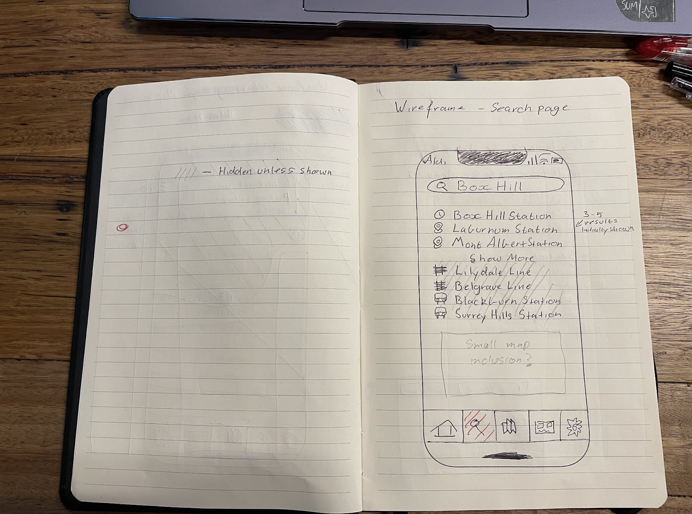 SUM
//// — Hidden unless shown
Wireframe - Search page
Box Hill
Box Hill Station
Laburnum Station
Mont Albert Station
Show More
Lilydale Line
Belgrave Line
Blackburn Station
Surrey Hills Station
3-5
results
initially shown
Small map
inclusion?